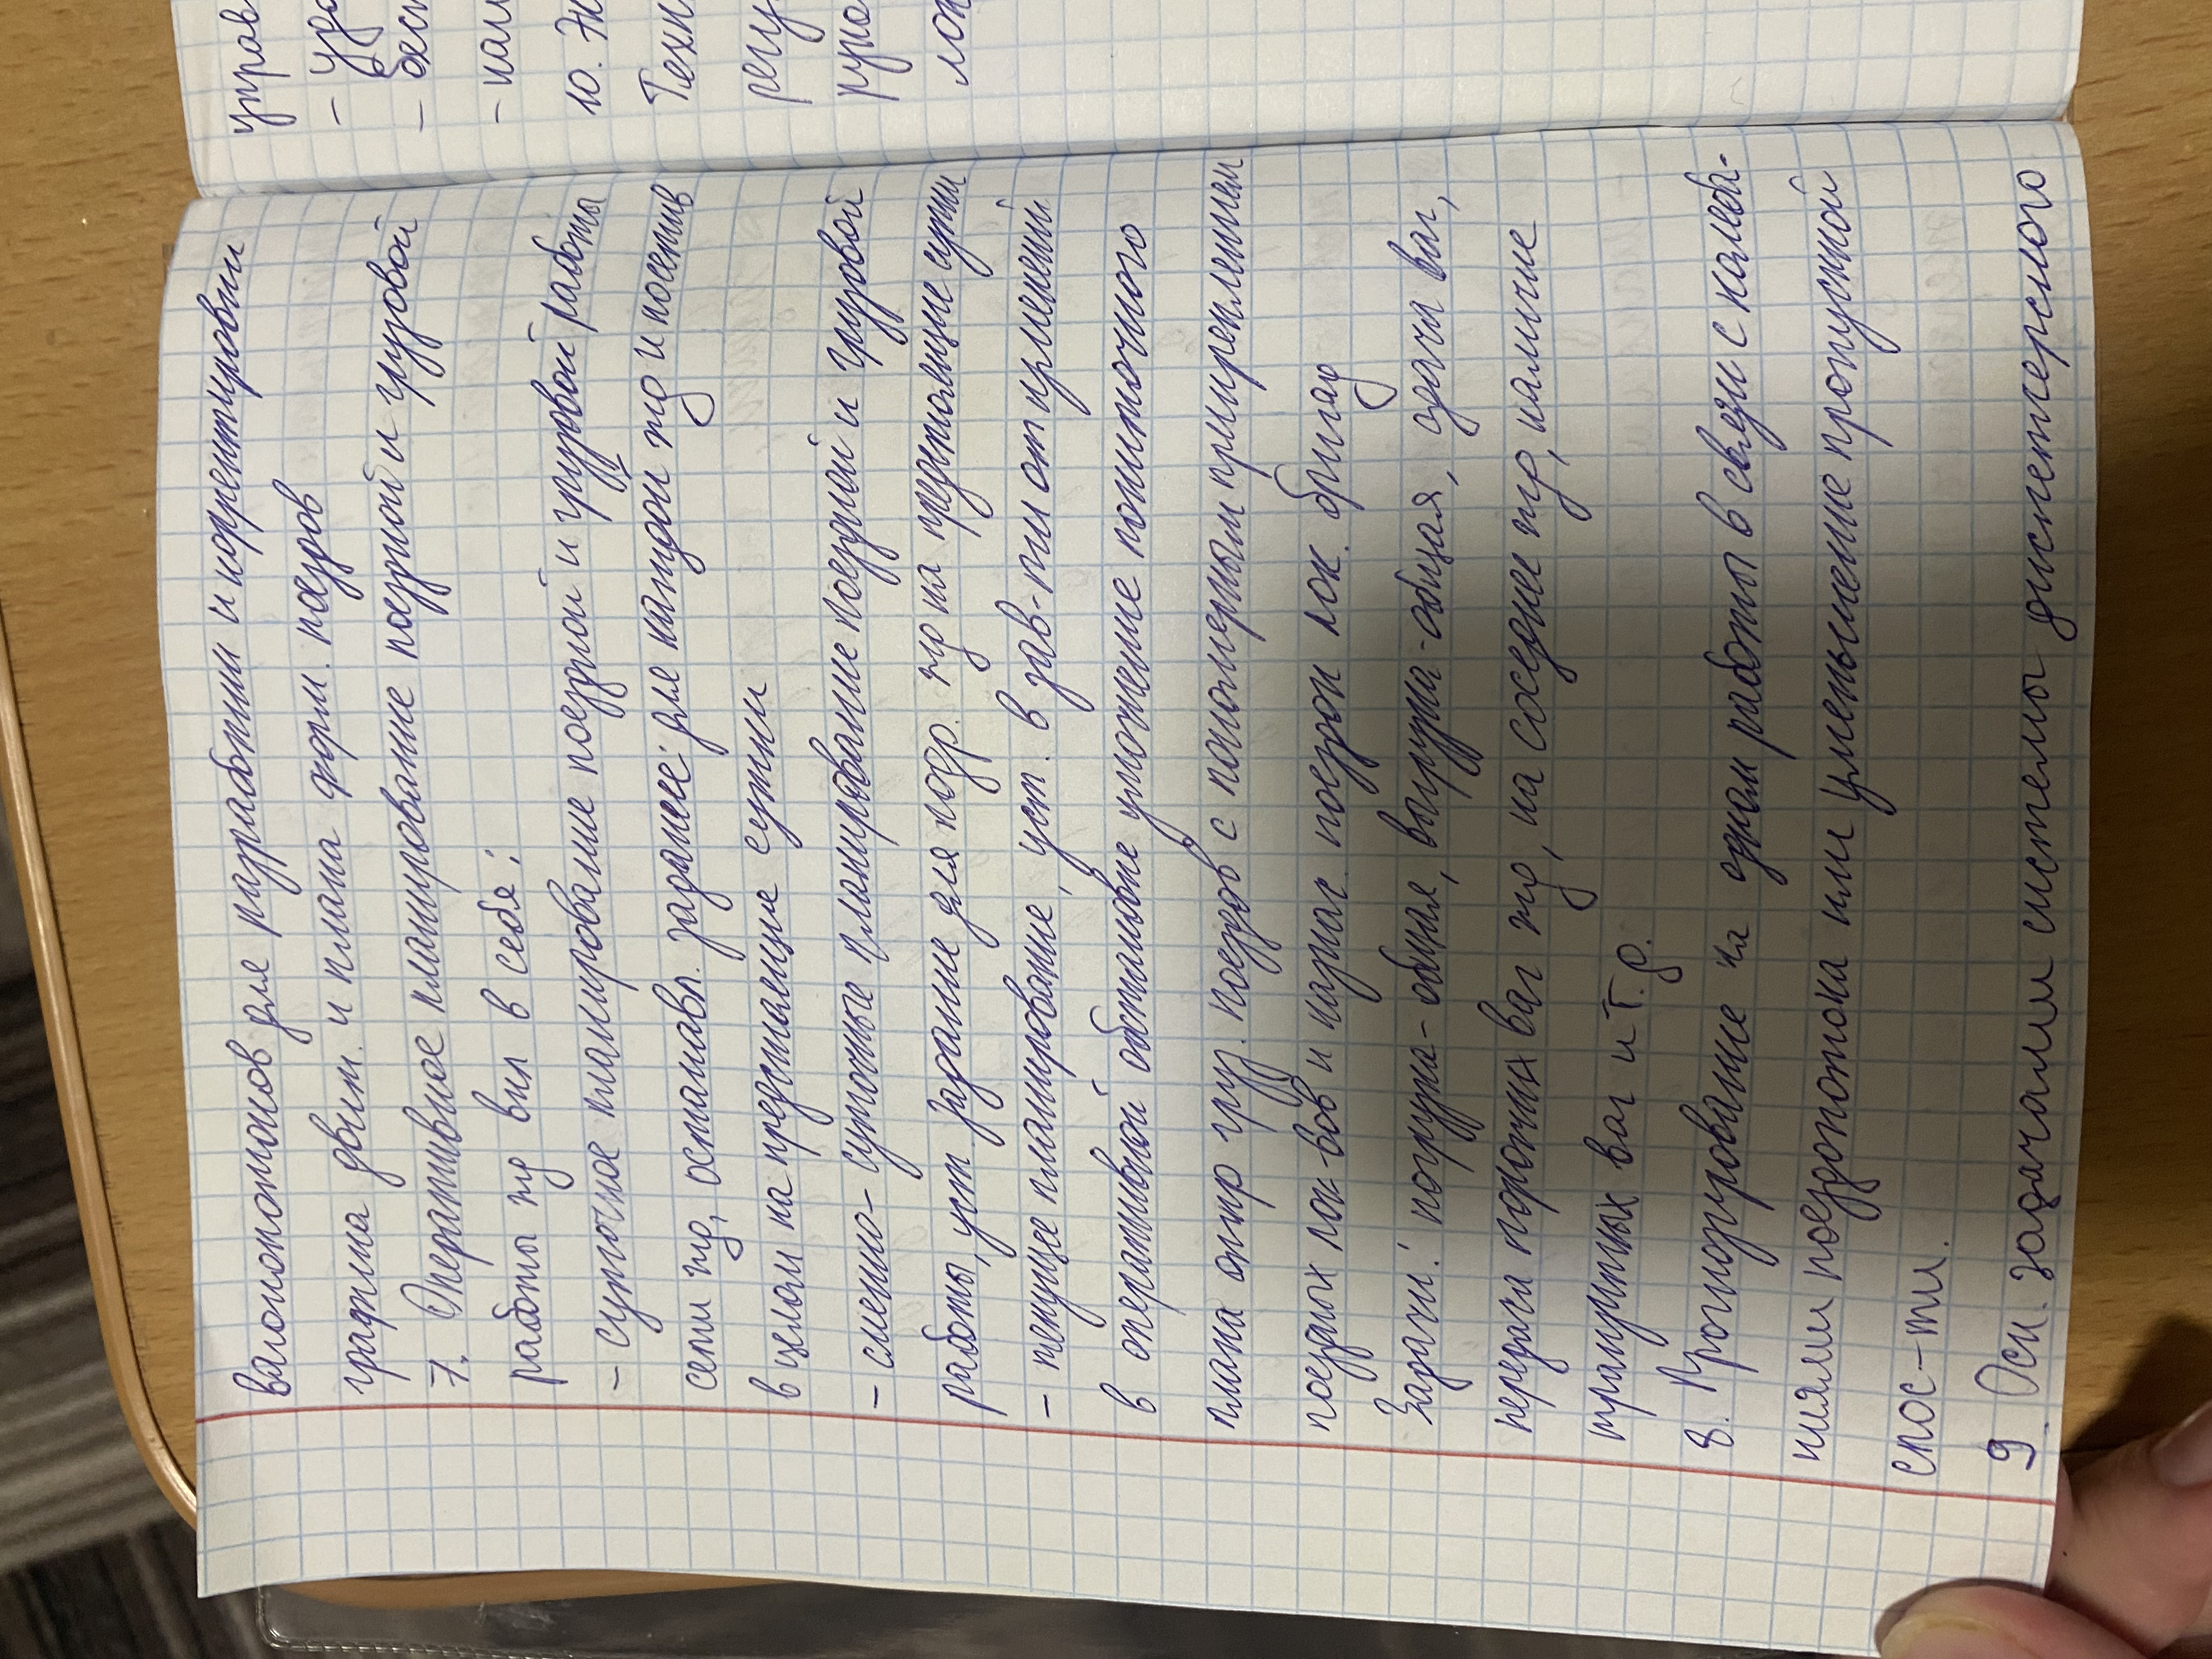 вагонопотоков для разработки и корректировки
графика движ. и плана форм. поездов
7. Оперативное планирование поездной и грузовой
работы жд вкл в себя:
- суточное планирование поездной и грузовой работы
сети жд, останавл. заранее для каждой жд и
в целом на предстоящие сутки
- сменно-суточные планирование поездной и грузовой
работы, уст. задание для подр. жд на предстоящие сутки
- текущее планирование, уст. в зав-ти от изменений
в оперативной обстановке уточнение
плана отпр груз. поездов с пономерным прикреплением
поездых лок-вов и назнач. поездок лок. бригад
Задачи: погрузка-общая, выгрузка-общая, сдачи ваг,
передачи порожних ваг жд, на соседние жд, наличие
транзитных ваг и т.д.
8. Прогнозирование на работы в связи с колеба-
ниями поездопотока или уменьшение пропускной
спос-ти.
9. Осн. задачами системы диспетчерского
управ
- удо
-
-
10. Эк
Техн
регу
руко
лок